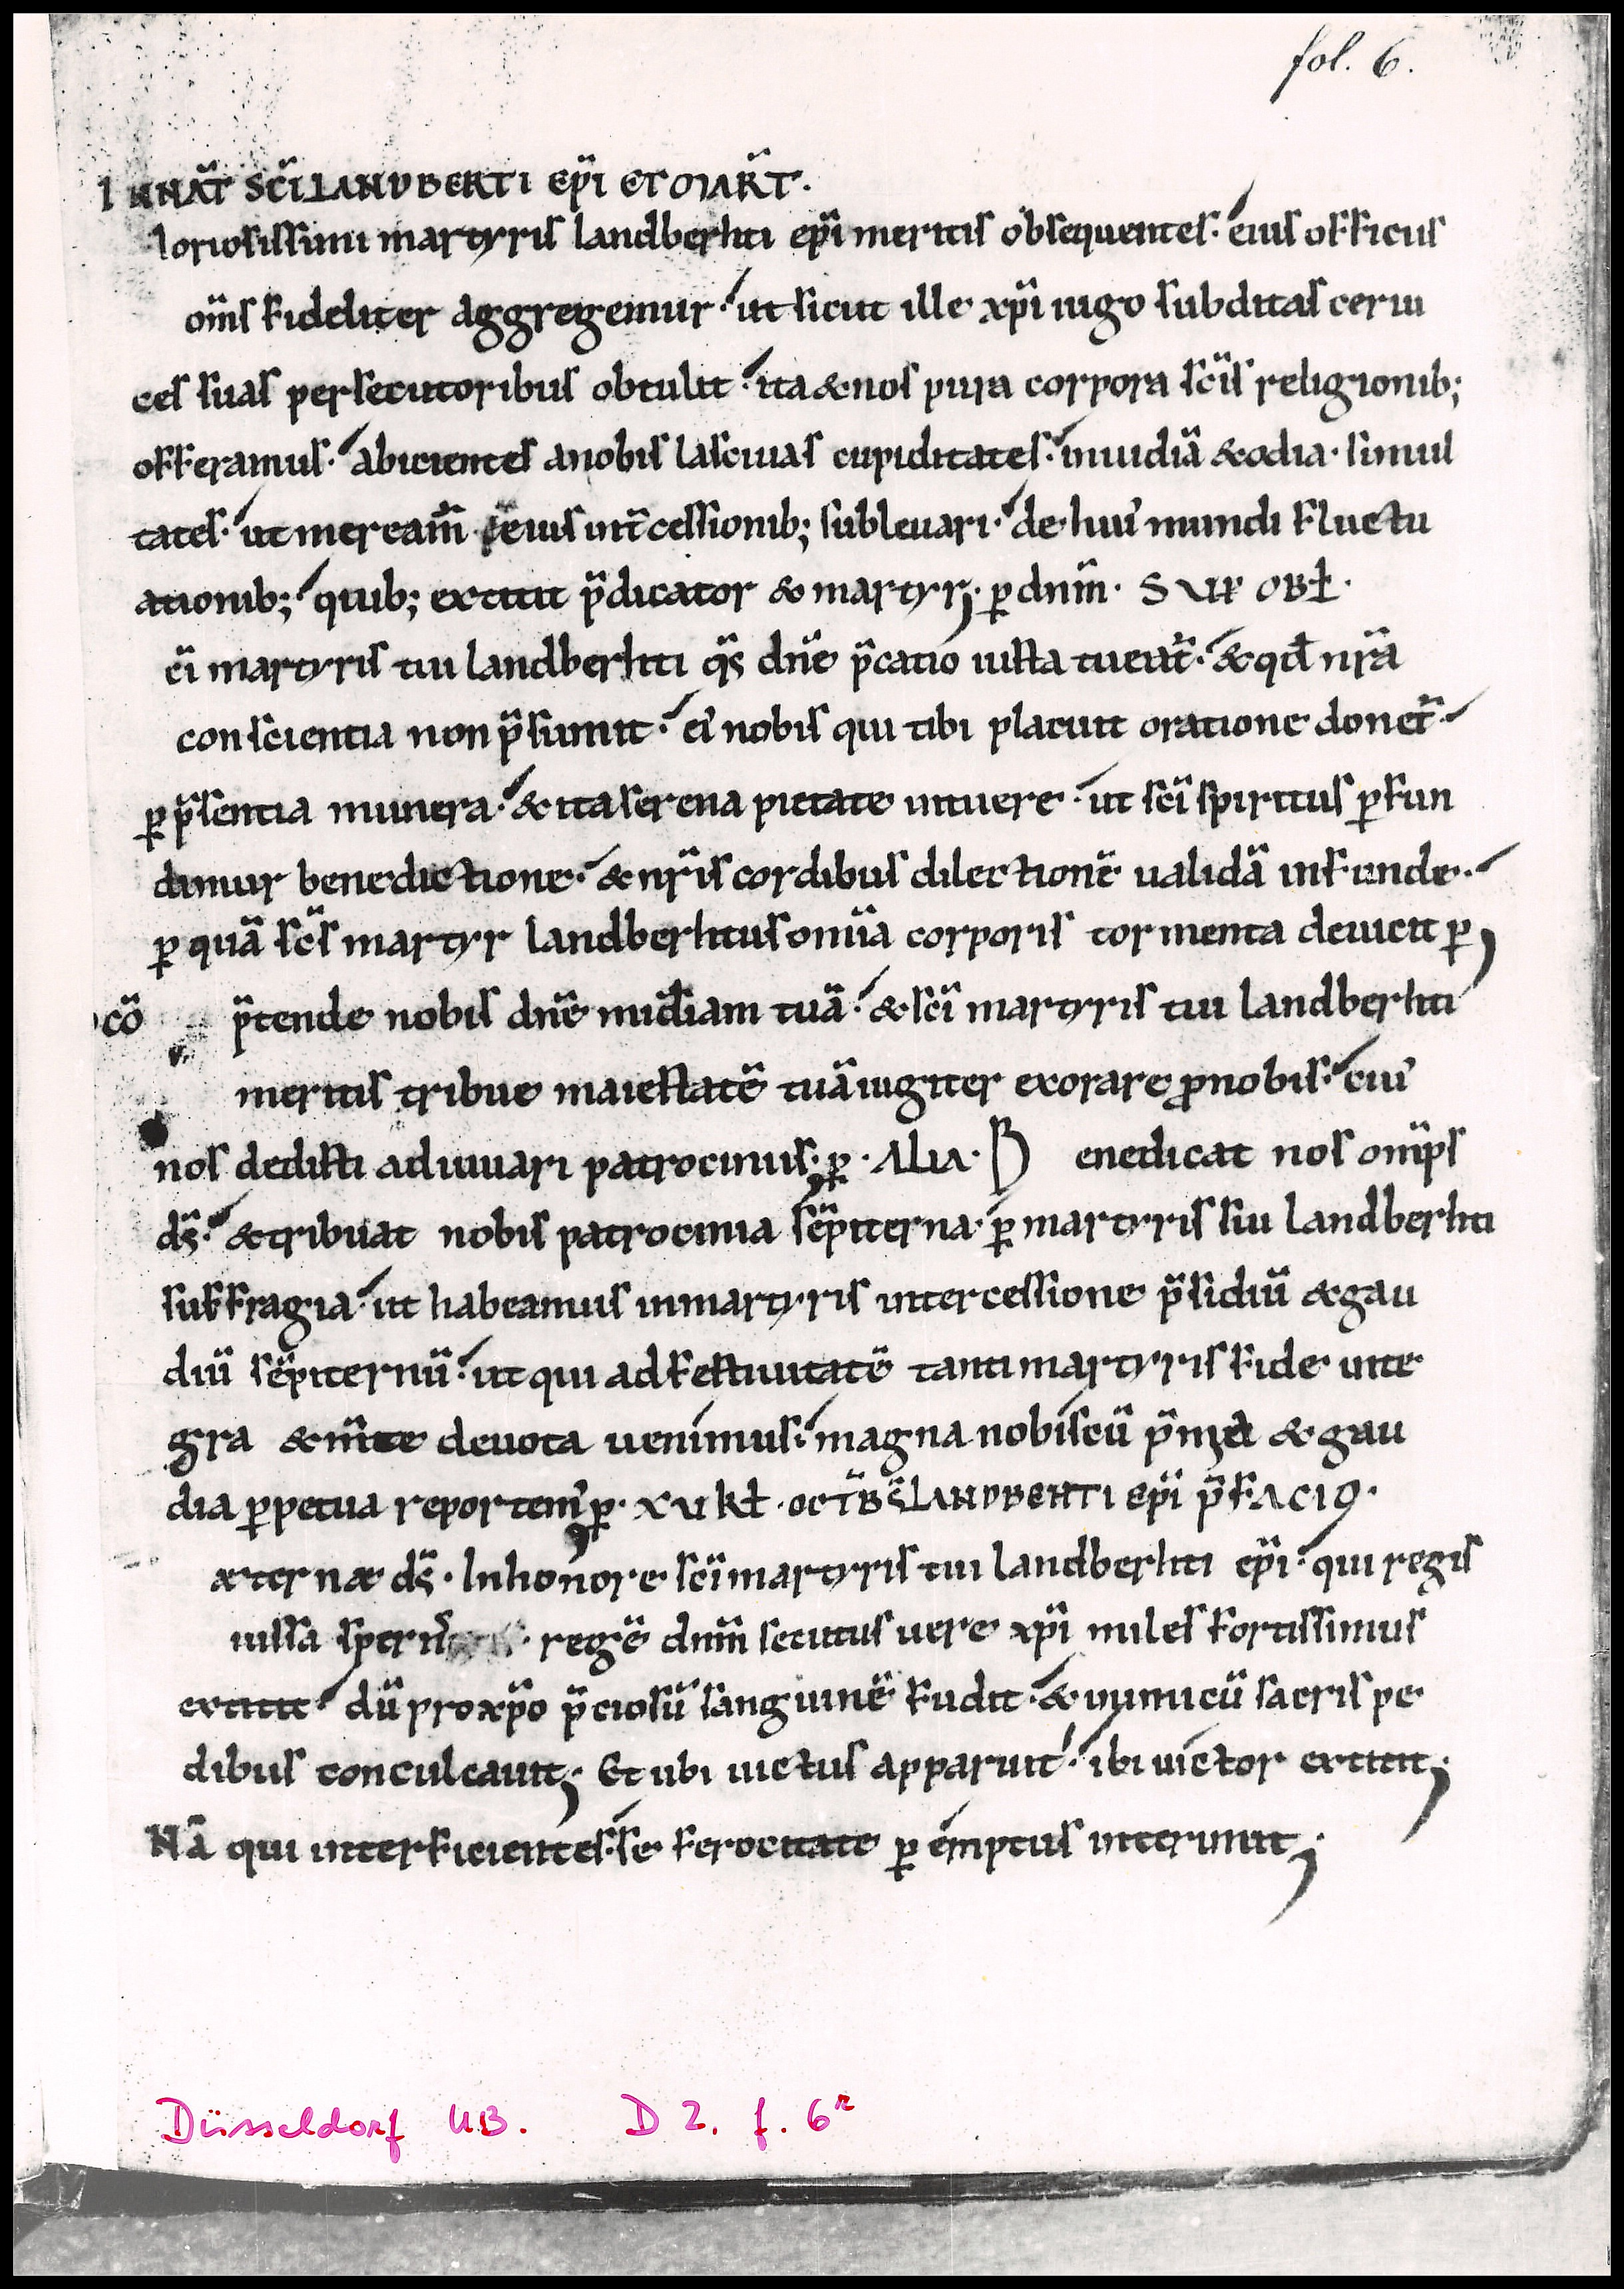 fol. 6.
IN NAT̄ SC̄I LANDBERTI EP̄I ET MART̄.
loriosissimi martyris landberhti ep̄i meritis obsequentes· eius officiis
om̄s fideliter aggregemur· ut sicut ille xp̄i iugo subditas cerui
ces suas persecutoribus obtulit· ita & nos pura corpora sc̄is religionib;
offeramus· abicientes a nobis lasciuas cupiditates· inuidiā & odia· simul
tates· ut meream̄ eius int̄cessionib; subleuari· de hui' mundi fluctu
ationib; quib; extitit p̄dicator & martyr; ꝑ dnm̄· SUP OBŁ·
c̄i martyris tui landberhti q̄s dn̄e p̄catio iusta tueat̄· & qđ nr̄a
conscientia non p̄sumit· ei' nobis qui tibi placuit oratione donet̄·
ꝑ p̄sentia munera· & ita serena pietate intuere· ut sc̄i spiritus ꝑfun
dimur benedictione· & nr̄is cordibus dilectionē ualidā infunde·
ꝑ quā sc̄s martyr landberhtus om̄ia corporis tormenta deuicit ꝑ;
cō p̄tende nobis dn̄e miđiam tuā· & sc̄i martyris tui landberhti
meritis tribue maiestatē tuā iugiter exorare ꝓ nobis· cui'
nos dedisti adiuuari patrociniis; ꝑ· ALIA· B enedicat nos om̄ps
ds̄· & tribuat nobis patrocinia sēpiterna· ꝑ martyris sui landberhti
suffragia· ut habeamus in martyris intercessione p̄sidiū & gau
diū sēpiternū· ut qui ad festiuitatē tanti martyris fide inte
gra & m̄te deuota uenimus· magna nobiscū p̄mia & gau
dia ꝑpetua reportem'; ꝑ· XV KŁ· OCTB̄ S̄ LANDBERTI EP̄I P̄FACIO·
æternæ ds̄· In honore sc̄i martyris tui landberhti ep̄i· qui regis
iussa regē dnm̄ secutus uere xp̄i miles fortissimus
extitit· dū pro xp̄o p̄ciosū sanguinē fudit· & inimicū sacris pe
dibus conculcauit; Et ubi uictus apparuit· ibi uictor extitit;
Nā qui interficientes·se ferocitate ꝑemptus interimit;
Düsseldorf UB. D 2. f. 6ʳ